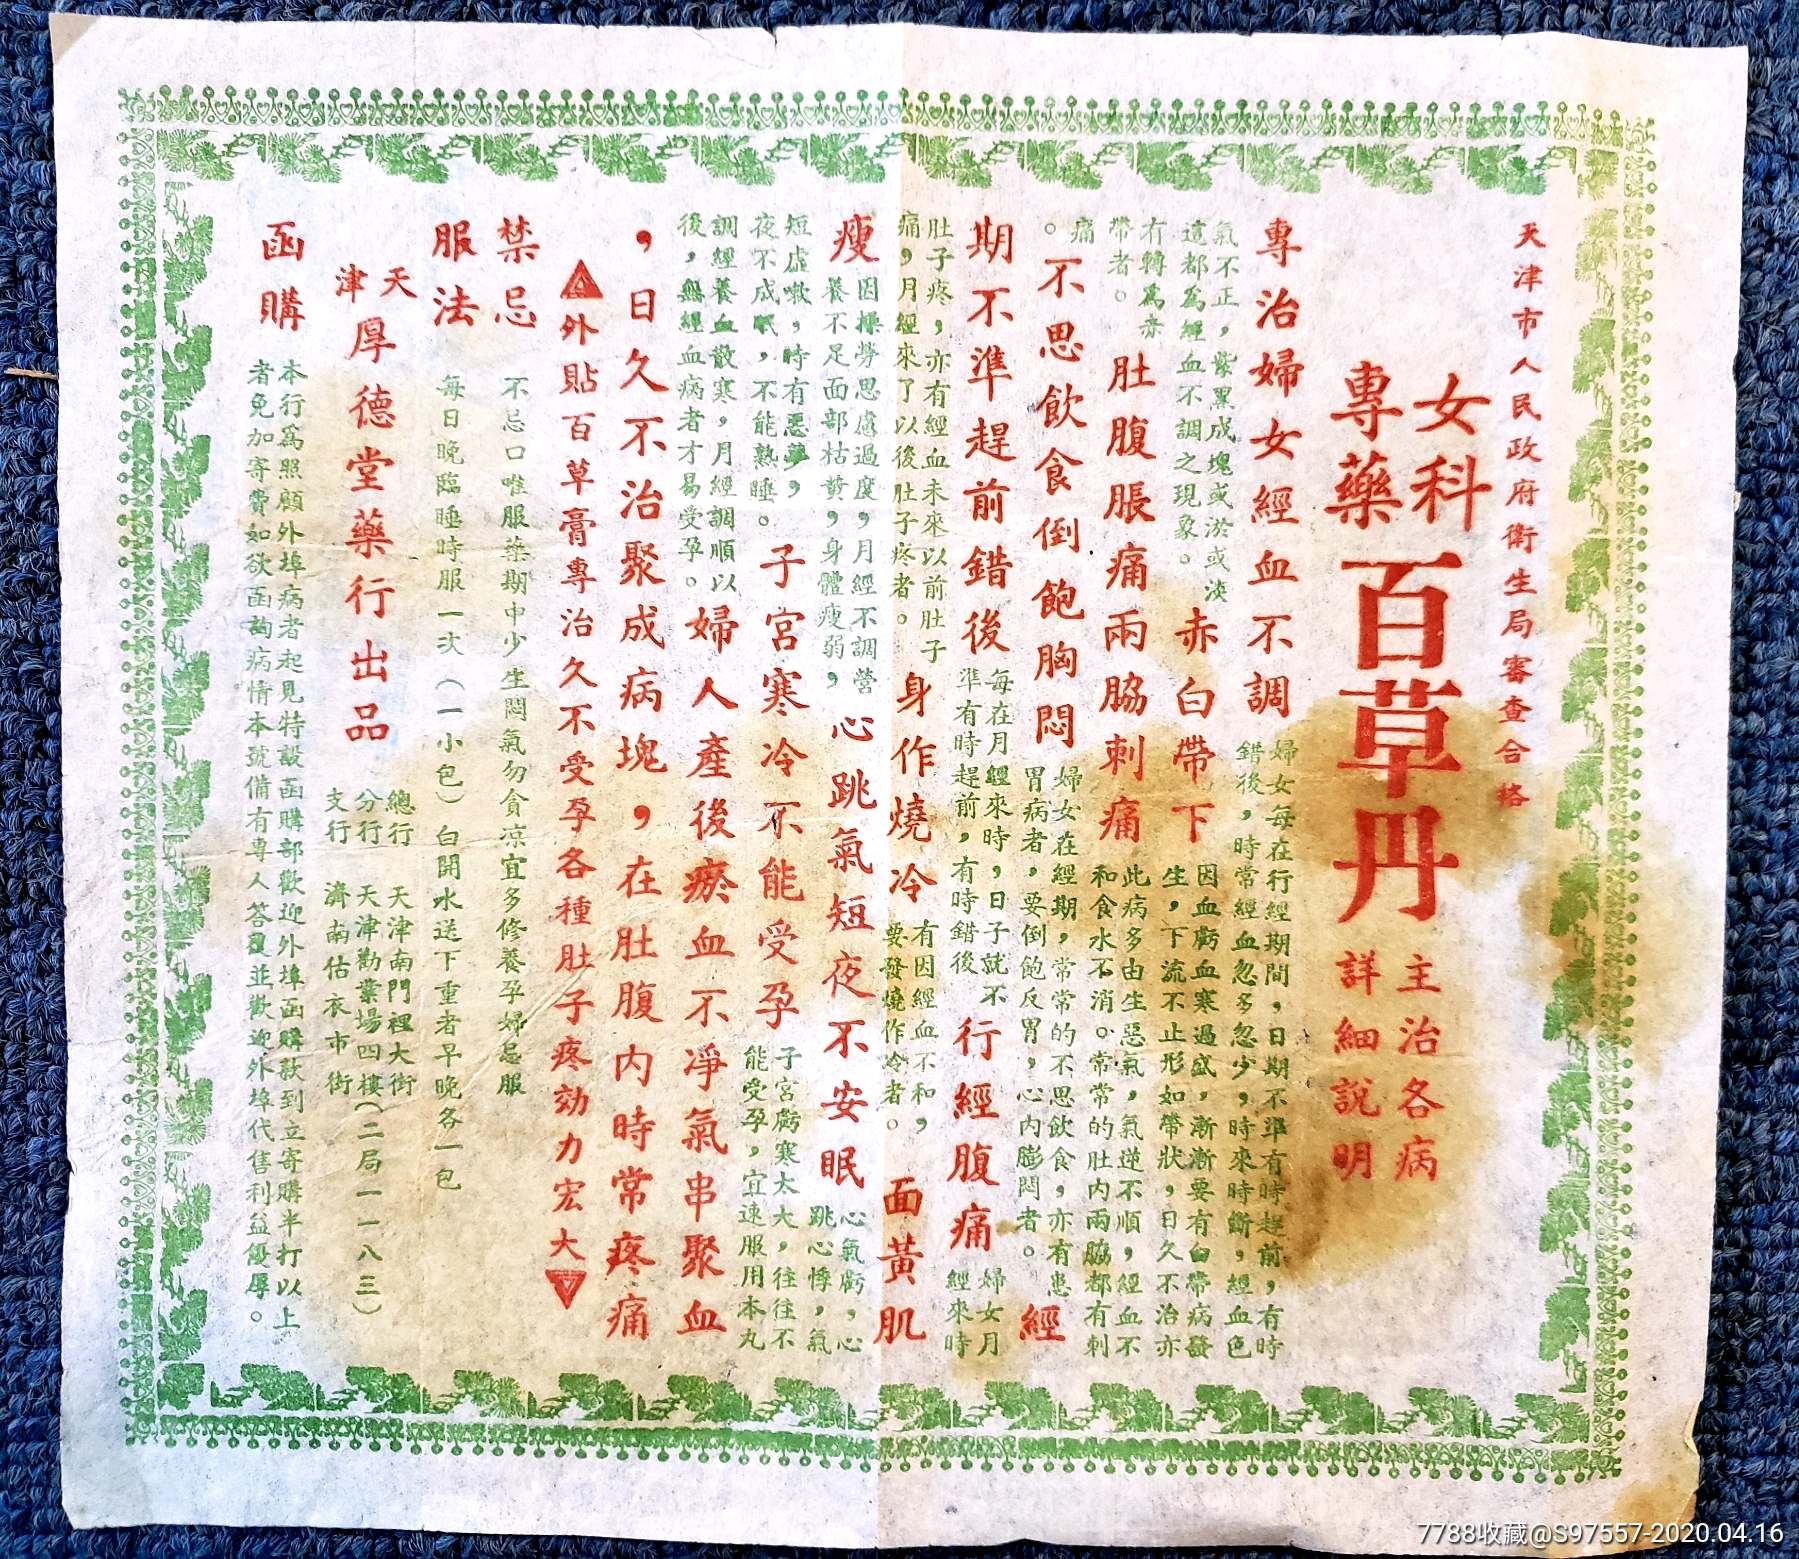 天津市人民政府衛生局審查合格
女科
專藥
百草丹
主治各病
詳細說明
專治婦女經血不調
婦女每在行經期間，日期不準有時趕前，有時
錯後，時常經血忽多忽少，時來時斷，經血色
氣不正，紫黑成塊或淤或淡
這都為經血不調之現象。
赤白帶下
因血虧血寒過盛，漸漸要有白帶病發
生，下流不止形如帶狀，日久不治亦
有轉為赤
帶者。
肚腹脹痛兩脇刺痛
此病多由生惡氣，氣逆不順，經血不
和食水不消。常常的肚內兩脇都有刺
痛
。
不思飲食倒飽胸悶
婦女在經期，常常的不思飲食，亦有患
胃病者，要倒飽反胃，心內膨悶者。
經
期不準趕前錯後
每在月經來時，日子就不
準有時趕前，有時錯後
行經腹痛
婦女月
經來時
肚子疼，亦有經血未來以前肚子
痛，月經來了以後肚子疼者。
身作燒冷
有因經血不和，
要發燒作冷者。
面黃肌
瘦
因操勞思慮過度，月經不調營
養不足面部枯黃，身體瘦弱，
心跳氣短夜不安眠
心氣虧，心
跳心悸，氣
短虛嗽，時有惡夢，
夜不成眠，不能熟睡。
子宮寒冷不能受孕
子宮虧寒太大，往往不
能受孕，宜速服用本丸
調經養血散寒，月經調順以
後，無經血病者才易受孕。
婦人產後瘀血不凈氣串聚血
，日久不治聚成病塊，在肚腹內時常疼痛
外貼百草膏專治久不受孕各種肚子疼効力宏大
禁忌
不忌口唯服藥期中少生悶氣勿貪凉宜多修養孕婦忌服
服法
每日晚臨睡時服一次（一小包）白開水送下重者早晚各一包
天
津
厚德堂藥行出品
總行 天津南門裡大街
分行 天津勸業場四樓（二局一一八三）
支行 濟南估衣市街
函購
本行為照顧外埠病者起見特設函購部歡迎外埠函購款到立寄購半打以上
者免加寄費如欲函詢病情本號備有專人答覆並歡迎外埠代售利益優厚。
7788收藏@S97557-2020.04.16